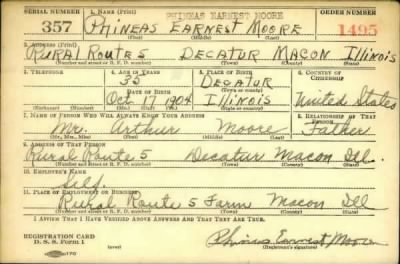 SERIAL NUMBER 1. NAME (Print) PHINEAS EARNEST MOORE ORDER NUMBER
357 PHINEAS EARNEST MOORE 1495
(First) (Middle) (Last)
2. ADDRESS (Print)
RURAL ROUTE 5 DECATUR MACON ILLINOIS
(Number and street or R. F. D. number) (Town) (County) (State)
3. TELEPHONE 4. AGE IN YEARS 5. PLACE OF BIRTH 6. COUNTRY OF CITIZENSHIP
35 DECATUR
DATE OF BIRTH (Town or county)
Oct 17 1904 ILLINOIS United States
(Exchange) (Number) (Mo.) (Day) (Yr.) (State or country)
7. NAME OF PERSON WHO WILL ALWAYS KNOW YOUR ADDRESS 8. RELATIONSHIP OF THAT PERSON
Mr. Arthur Moore Father
(Mr., Mrs., Miss) (First) (Middle) (Last)
9. ADDRESS OF THAT PERSON
Rural Route 5 Decatur Macon Ill.
(Number and street or R. F. D. number) (Town) (County) (State)
10. EMPLOYER'S NAME
Self.
11. PLACE OF EMPLOYMENT OR BUSINESS
Rural Route 5 Farm Macon Ill
(Number and street or R. F. D. number) (Town) (County) (State)
I AFFIRM THAT I HAVE VERIFIED ABOVE ANSWERS AND THAT THEY ARE TRUE.
REGISTRATION CARD
D. S. S. Form 1 (over) Phineas Earnest Moore
(Registrant's signature)